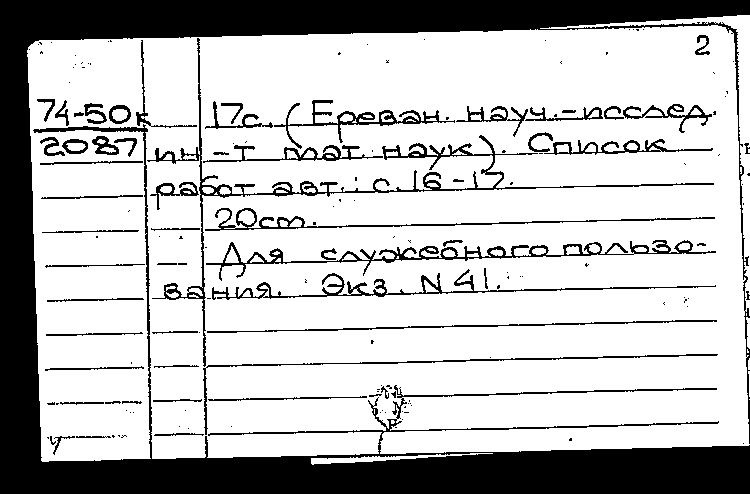 2
74-50к 17с. (Ереван. науч.-исслед.
2087 ин-т мат. наук). Список
работ авт.: с. 16-17.
20см.
— Для служебного пользо-
вания. Экз. N 41.